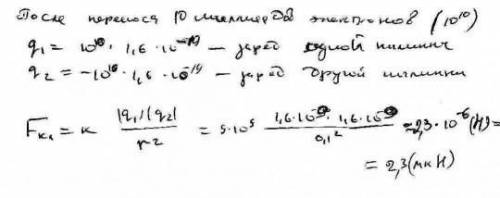 После переноса 10 миллиардов электронов (10¹⁰)
q₁ = 10¹⁰ · 1,6 · 10⁻¹⁹ — заряд одной пылинки
q₂ = -10¹⁰ · 1,6 · 10⁻¹⁹ — заряд другой пылинки
Fк₁ = к |q₁||q₂| / r² = 9·10⁹ 1,6·10⁻⁹ · 1,6·10⁻⁹ / 0,1² = 2,3 · 10⁻⁶ (Н) =
= 2,3 (мкН)